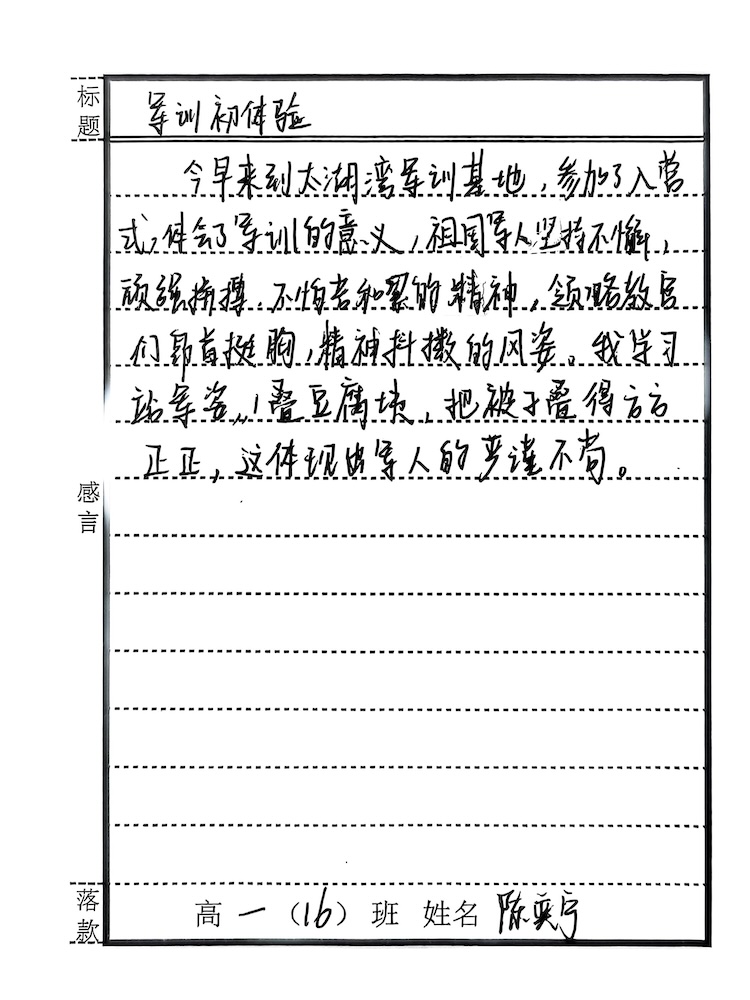 标题
军训初体验
今早来到太湖湾军训基地，参加了入营
式，体会了军训的意义，祖国军人坚持不懈，
顽强拼搏，不怕苦和累的精神，领略教官
们昂首挺胸，精神抖擞的风姿。我学习
站军姿，叠豆腐块，把被子叠得方方
正正，这体现出军人的严谨不苟。
感言
落款
高一（16）班 姓名 陈奕宁